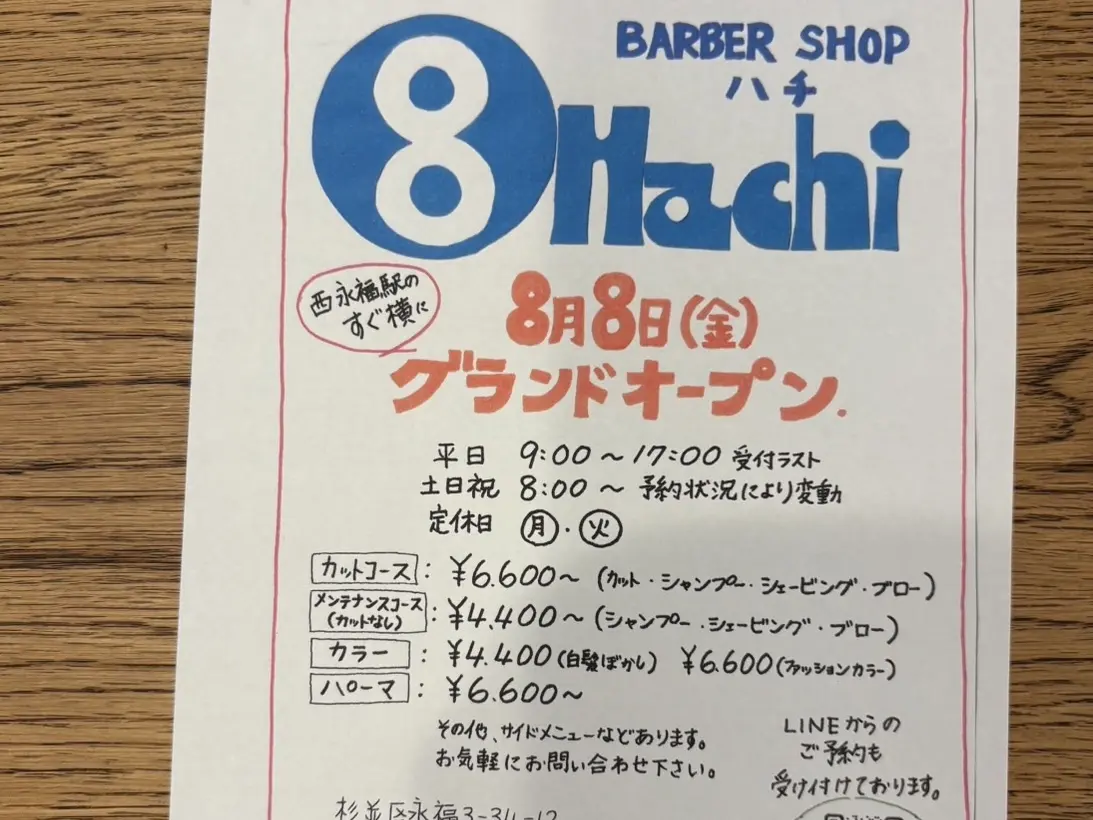 8 Hachi
BARBER SHOP
ハチ
西永福駅の
すぐ横に
8月8日(金)
グランドオープン.
平日 9:00～17:00 受付ラスト
土日祝 8:00～ 予約状況により変動
定休日 月・火
カットコース : ¥6.600～ (カット・シャンプー・シェービング・ブロー)
メンテナンスコース(カットなし) : ¥4.400～ (シャンプー・シェービング・ブロー)
カラー : ¥4.400(白髪ぼかし) ¥6.600(ファッションカラー)
パーマ : ¥6.600～
その他、サイドメニューなどあります。
お気軽にお問い合わせ下さい。
LINEからの
ご予約も
受け付けております。
杉並区永福3-34-12